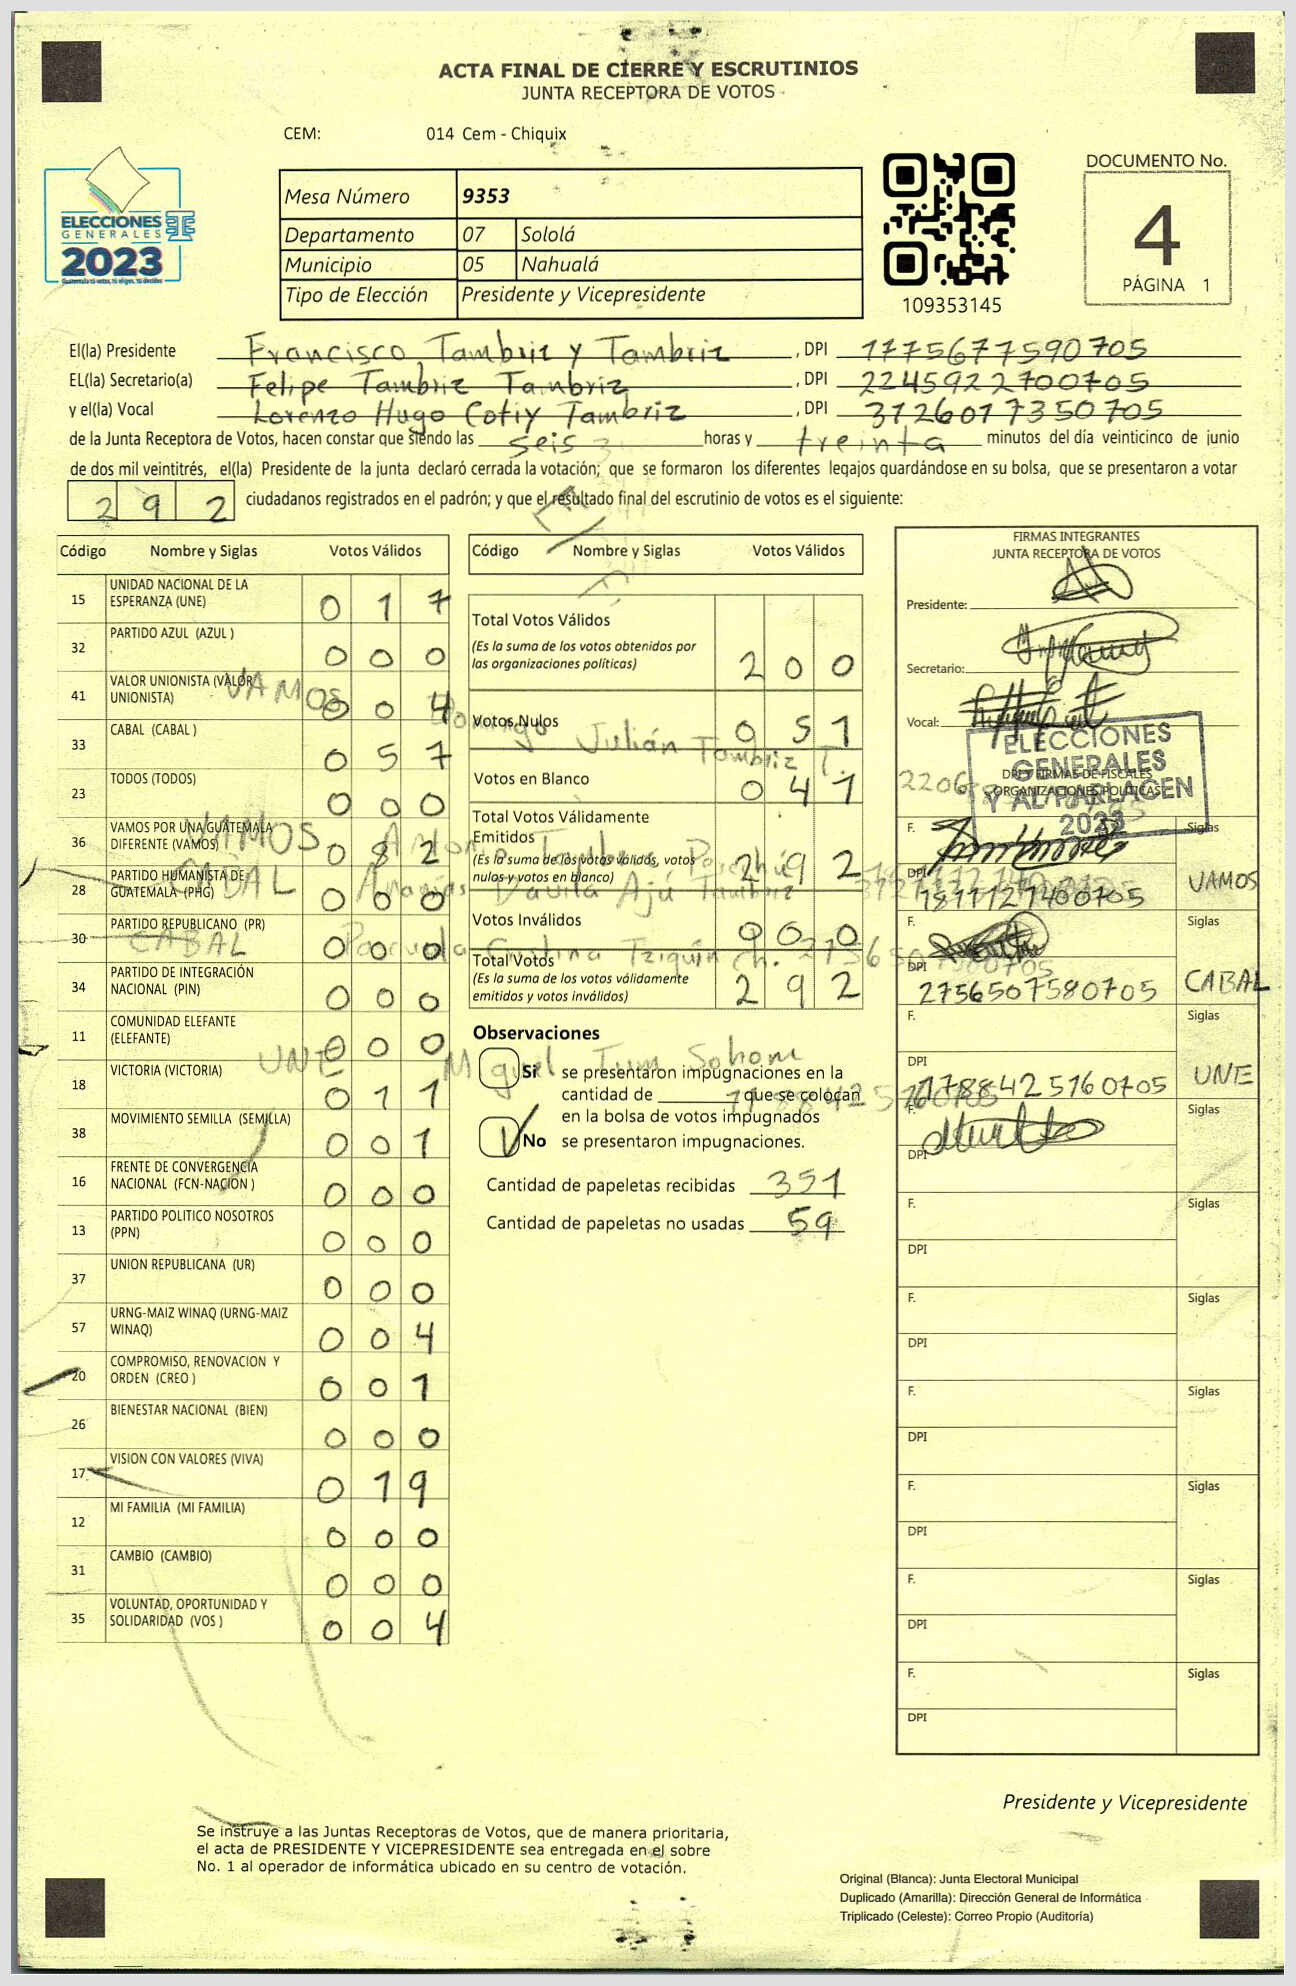 ACTA FINAL DE CIERRE Y ESCRUTINIOS
JUNTA RECEPTORA DE VOTOS
CEM: 014 Cem - Chiquix
ELECCIONES
GENERALES
2023
Mesa Número 9353
Departamento 07 Sololá
Municipio 05 Nahualá
Tipo de Elección Presidente y Vicepresidente
109353145
DOCUMENTO No.
4
PÁGINA 1
El(la) Presidente Francisco Tambriz y Tambriz , DPI 1775677590705
EL(la) Secretario(a) Felipe Tambriz Tambriz , DPI 2245922700705
y el(la) Vocal Lorenzo Hugo Cotiy Tambriz , DPI 3726017350705
de la Junta Receptora de Votos, hacen constar que siendo las seis horas y treinta minutos del día veinticinco de junio
de dos mil veintitrés, el(la) Presidente de la junta declaró cerrada la votación; que se formaron los diferentes legajos guardándose en su bolsa, que se presentaron a votar
292 ciudadanos registrados en el padrón; y que el resultado final del escrutinio de votos es el siguiente:
Código Nombre y Siglas Votos Válidos
15 UNIDAD NACIONAL DE LA ESPERANZA (UNE) 0 1 7
32 PARTIDO AZUL (AZUL ) 0 0 0
41 VALOR UNIONISTA (VALOR UNIONISTA) 0 0 4
33 CABAL (CABAL ) 0 5 7
23 TODOS (TODOS) 0 0 0
36 VAMOS POR UNA GUATEMALA DIFERENTE (VAMOS) 0 8 2
28 PARTIDO HUMANISTA DE GUATEMALA (PHG) 0 0 0
30 PARTIDO REPUBLICANO (PR) 0 0 0
34 PARTIDO DE INTEGRACIÓN NACIONAL (PIN) 0 0 0
11 COMUNIDAD ELEFANTE (ELEFANTE) 0 0 0
18 VICTORIA (VICTORIA) 0 1 1
38 MOVIMIENTO SEMILLA (SEMILLA) 0 0 1
16 FRENTE DE CONVERGENCIA NACIONAL (FCN-NACION ) 0 0 0
13 PARTIDO POLITICO NOSOTROS (PPN) 0 0 0
37 UNION REPUBLICANA (UR) 0 0 0
57 URNG-MAIZ WINAQ (URNG-MAIZ WINAQ) 0 0 4
20 COMPROMISO, RENOVACION Y ORDEN (CREO ) 0 0 1
26 BIENESTAR NACIONAL (BIEN) 0 0 0
17 VISION CON VALORES (VIVA) 0 1 9
12 MI FAMILIA (MI FAMILIA) 0 0 0
31 CAMBIO (CAMBIO) 0 0 0
35 VOLUNTAD, OPORTUNIDAD Y SOLIDARIDAD (VOS ) 0 0 4
Código Nombre y Siglas Votos Válidos
Total Votos Válidos 2 0 0
(Es la suma de los votos obtenidos por
las organizaciones políticas)
Votos Nulos 0 5 1
Votos en Blanco 0 4 1
Total Votos Válidamente
Emitidos 2 9 2
(Es la suma de los votos válidos, votos
nulos y votos en blanco)
Votos Inválidos 0 0 0
Total Votos 2 9 2
(Es la suma de los votos válidamente
emitidos y votos inválidos)
VAMOS Domingo Julián Tambriz T. 2206
VAMOS Antonio
CABAL Ananías Davila Ajú Tambriz
CABAL Pascuala Cristina Tziquín Ch. 2756507580705
UNE Miguel Tum Sohom
1788425160705
Observaciones
Si se presentaron impugnaciones en la
cantidad de ______ que se colocan
en la bolsa de votos impugnados
No se presentaron impugnaciones.
Cantidad de papeletas recibidas 351
Cantidad de papeletas no usadas 59
FIRMAS INTEGRANTES
JUNTA RECEPTORA DE VOTOS
Presidente:
Secretario:
Vocal:
DPI Y FIRMAS DE FISCALES
ORGANIZACIONES POLÍTICAS
ELECCIONES
GENERALES
Y AL PARLACEN
2023
F. Siglas
DPI 1877727400705 VAMOS
F. Siglas
DPI 2756507580705 CABAL
F. Siglas
DPI 1788425160705 UNE
F. Siglas
DPI
F. Siglas
DPI
F. Siglas
DPI
F. Siglas
DPI
F. Siglas
DPI
F. Siglas
DPI
F. Siglas
DPI
Presidente y Vicepresidente
Se instruye a las Juntas Receptoras de Votos, que de manera prioritaria,
el acta de PRESIDENTE Y VICEPRESIDENTE sea entregada en el sobre
No. 1 al operador de informática ubicado en su centro de votación.
Original (Blanca): Junta Electoral Municipal
Duplicado (Amarilla): Dirección General de Informática
Triplicado (Celeste): Correo Propio (Auditoría)